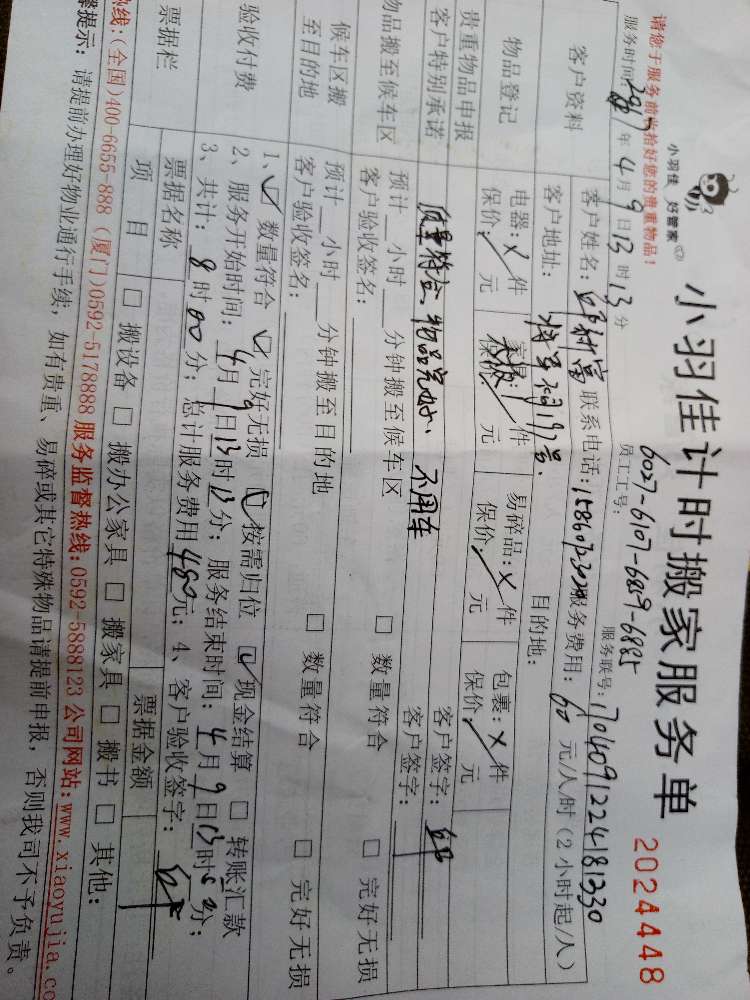 请您于服务前收拾好您的贵重物品！
小羽佳 好管家
小羽佳计时搬家服务单
2024448
员工工号：6027-6107-6859-6885
服务时间 年4月9日13时13分
服务联号：1704091224181330
客户资料
客户姓名： 联系电话： 服务费用：60元/人/时（2小时起/人）
客户地址： 目的地：
物品登记
电器：X件 家具： 件 易碎品：X件 包裹：X件
保价：/元 保价： 元 保价：/元 保价：/元
贵重物品申报
客户签字：
客户特别承诺
质量符合 物品完好、不用车
客户签字：
物品搬至候车区
预计__小时__分钟搬至候车区 □ 数量符合 □ 完好无损
客户验收签名：
候车区搬至目的地
预计__小时__分钟搬至目的地 □ 数量符合 □ 完好无损
客户验收签名：
验收付费
1、☑ 数量符合 ☑ 完好无损 ☑ 按需归位 ☑ 现金结算 □ 转账汇款
2、服务开始时间：4月9日13时13分；服务结束时间：4月9日 时 分；
3、共计：8时00分；总计服务费用480元；4、客户验收签字：
票据栏
票据名称 票据金额
项目 □ 搬设备 □ 搬办公家具 □ 搬家具 □ 搬书 □ 其他：
热线：(全国)400-6655-888 (厦门)0592-5178888 服务监督热线：0592-5888123 公司网站：www.xiaoyujia.cc
提示：请提前办理好物业通行手续，如有贵重、易碎或其它特殊物品请提前申报，否则我司不予负责。